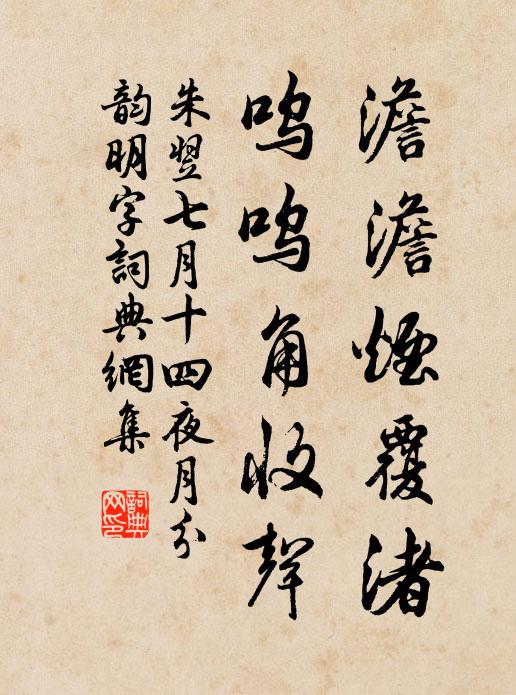 澹澹煙覆渚
嗚嗚角收聲
朱翌七月十四夜月分
韵明字詞典網集
詞典網印